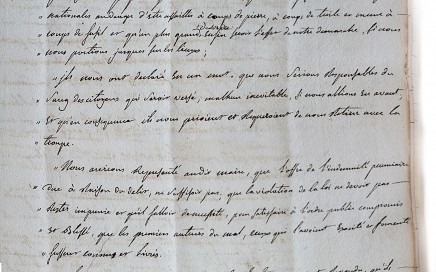 nationales au danger d'être assaillis à coups de pierre, à coups de
coups de fusil et qu'un plus grand seroit l'effet de notre demarche, si nous
" nous portions jusques sur les lieux;
" ils nous ont declaré en un mot, que nous serions responsables du
" sang des citoyens qui seroit versé, malheur inevitable, si nous allions en avant
" et qu'en consequence ils nous prioient et requeroient de nous retirer avec la
" troupe.
" Nous aurions représenté audit maire, que l'offre de l'indemnité pecuniaire
" due à raison du delit, ne suffisoit pas, que la violation de la loi ne devoit pas
" rester impunie et qu'il falloit pour satisfaire à l'ordre public compromis
" et que les premiers auteurs du mal, ceux qui l'avoient et fomenté
" fussent connus et livrés.